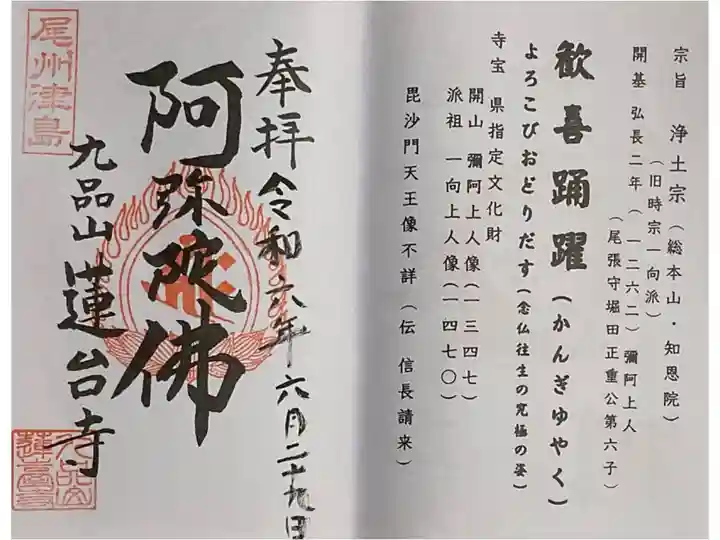 宗旨 浄土宗（総本山・知恩院）
（旧時宗一向派）
開基 弘長二年（一二六二）彌阿上人
（尾張守堀田正重公第六子）
歓喜踊躍（かんぎゆやく）
よろこびおどりだす（念仏往生の究極の姿）
寺宝 県指定文化財
開山 彌阿上人像（一三四七）
派祖 一向上人像（一四七〇）
毘沙門天王像不詳（伝 信長請来）
奉拝 令和六年六月二十九日
阿弥陀佛
九品山 蓮台寺
尾州津島